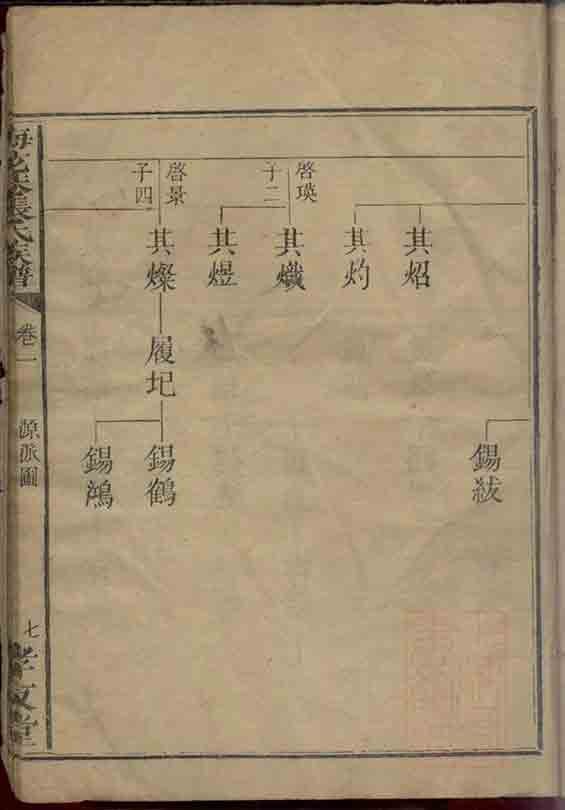 其炤
其灼
啓瑛
子二
其熾
其煜
啓景
子四
其燦
履圯
錫紱
錫鶴
錫鴻
張氏族譜
卷一
源派圖
七
孝友堂